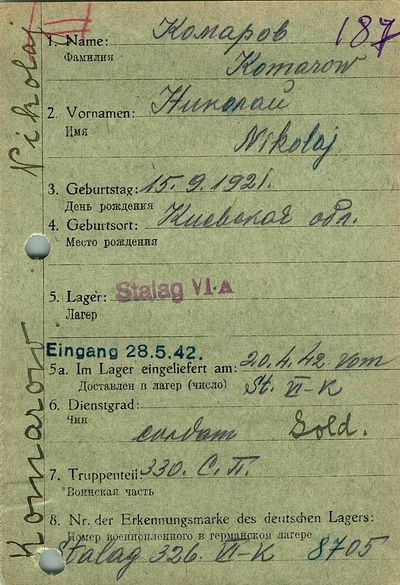 187
1. Name: Комаров
Фамилия
Komarow
2. Vornamen: Николай
Имя
Nikolaj
3. Geburtstag: 15.9.1921.
День рождения
4. Geburtsort: Киевская обл.
Место рождения
5. Lager: Stalag VI-A
Лагер
Eingang 28.5.42.
5a. Im Lager eingeliefert am: 20.4.42 vom
Доставлен в лагер (число) St. VI-K
6. Dienstgrad:
Чин
солдат Sold.
7. Truppenteil: 330. С.П.
Воинская часть
8. Nr. der Erkennungsmarke des deutschen Lagers:
Номер военнопленного в германском лагере
Stalag 326 VI-K 8705
Komarow Nikolaj